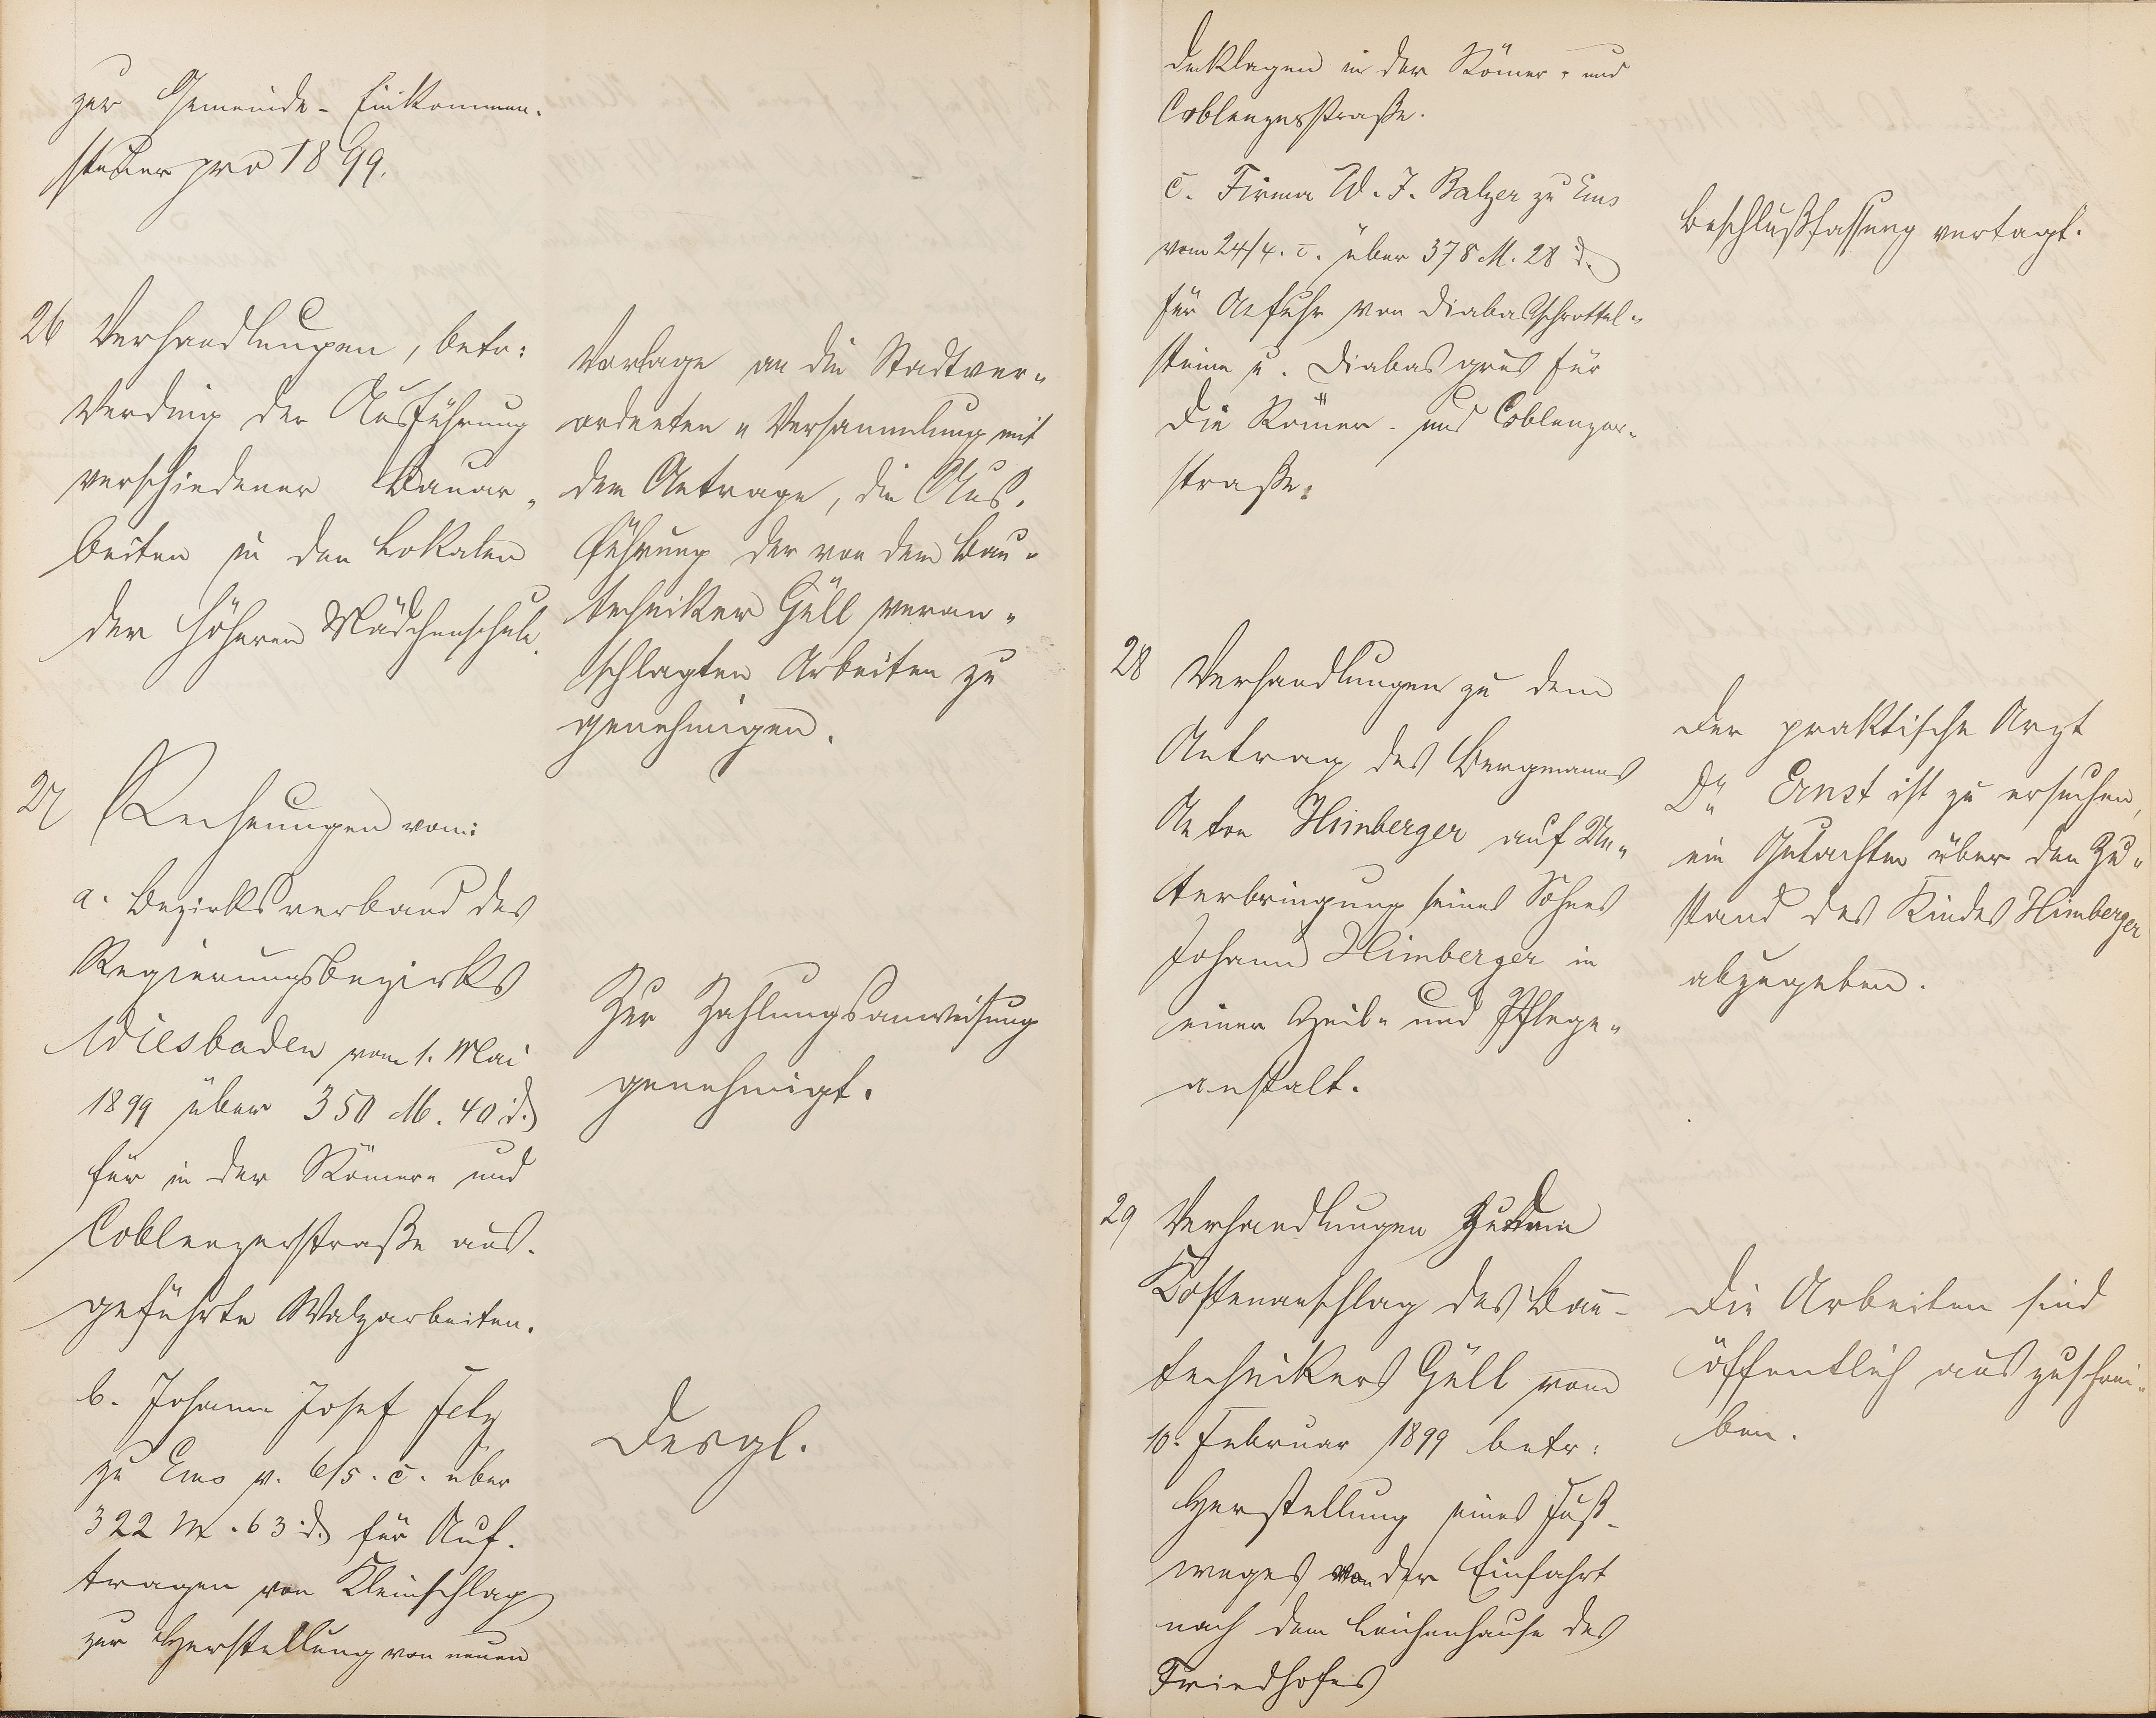 zur Gemeinde- Einkommen-
steuer pro 1899.
26 Verhandlungen, betr:
Verding der Ausführung
verschiedener Bauar-
beiten in den Lokalen
der höheren Mädchenschule.
Vorlage an die Stadtver-
ordneten-Versammlung mit
dem Antrage, die Aus-
führung der von dem Bau-
techniker Güll veran-
schlagten Arbeiten zu
genehmigen.
27 Rechnungen vom:
a. Bezirksverband des
Regierungsbezirks
Wiesbaden vom 1. Mai
1899 über 350 M. 40 d.
für in der Römer- und
Coblenzerstraße aus-
geführte Walzarbeiten.
Zur Zahlungsanweisung
genehmigt.
b. Johann Josef Fetz
zu Ems v. 6/5. c. über
322 M. 63 d. für Auf-
tragen von Kleinschlag
zur Herstellung von neuen
Desgl.
Decklagen in der Römer- und
Coblenzerstraße.
c. Firma W. J. Balzer zu Ems
vom 24/4. c. über 378 M. 28 d.
für Anfuhr von Diabasschrottel-
steine u. Diabasgrus für
die Römer- und Coblenzer-
straße.
Beschlußfassung vertagt.
28 Verhandlungen zu dem
Antrag des Bergmanns
Anton Himberger auf Un-
terbringung seines Sohnes
Johann Himberger in
einer Heil- und Pflege-
anstalt.
Der praktische Arzt
Dr. Ernst ist zu ersuchen,
ein Gutachten über den Zu-
stand des Kindes Himberger
abzugeben.
29 Verhandlungen zu dem
Kostenanschlag des Bau-
technikers Güll vom
10. Februar 1899 betr:
Herstellung eines Fuß-
weges von der Einfahrt
nach dem Leichenhause des
Friedhofes
Die Arbeiten sind
öffentlich auszuschrei-
ben.